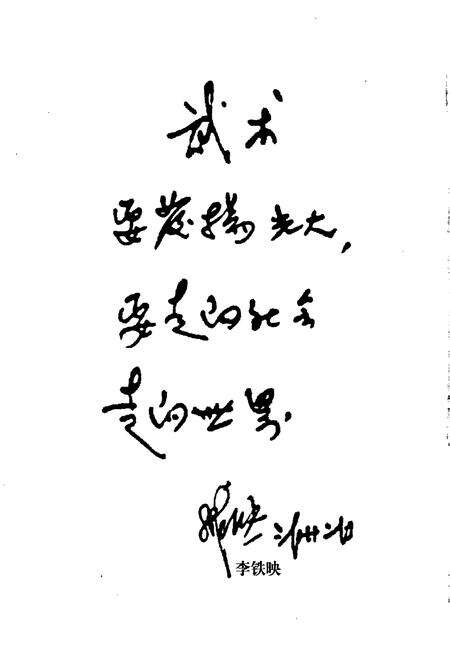 武术
要发扬光大，
要走向社会
走向世界.
李铁映
李铁映